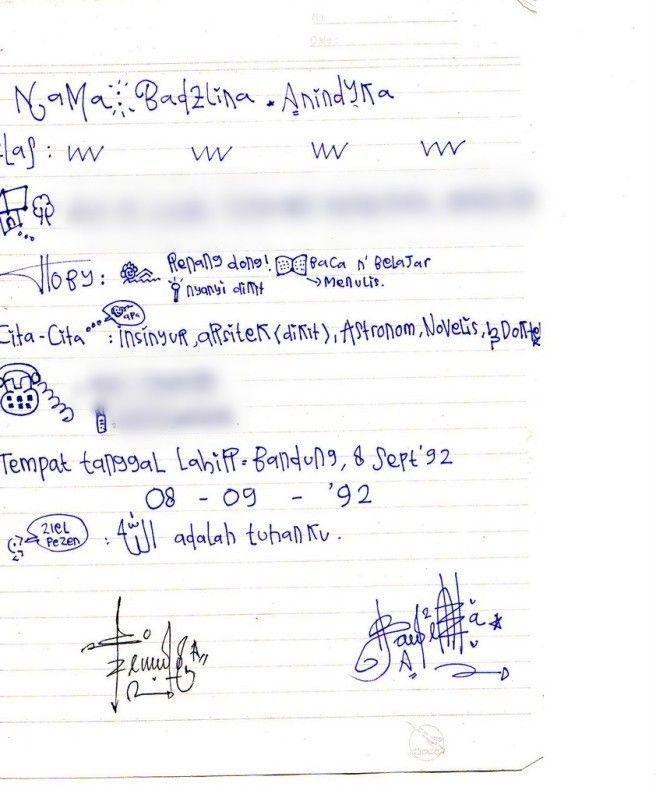 No
Date:
NaMa: Badzlina . Anindyka
HoBy : Renang dong! Baca n' Belajar
nyanyi dikit → Menulis.
Cita-Cita... : insinyur, arsitek (dikit), Astronom, Novelis, Dokter
Tempat tanggal Lahirr = Bandung, 8 Sept '92
08 - 09 - '92
ziel
Pezen : الله adalah tuhanku.